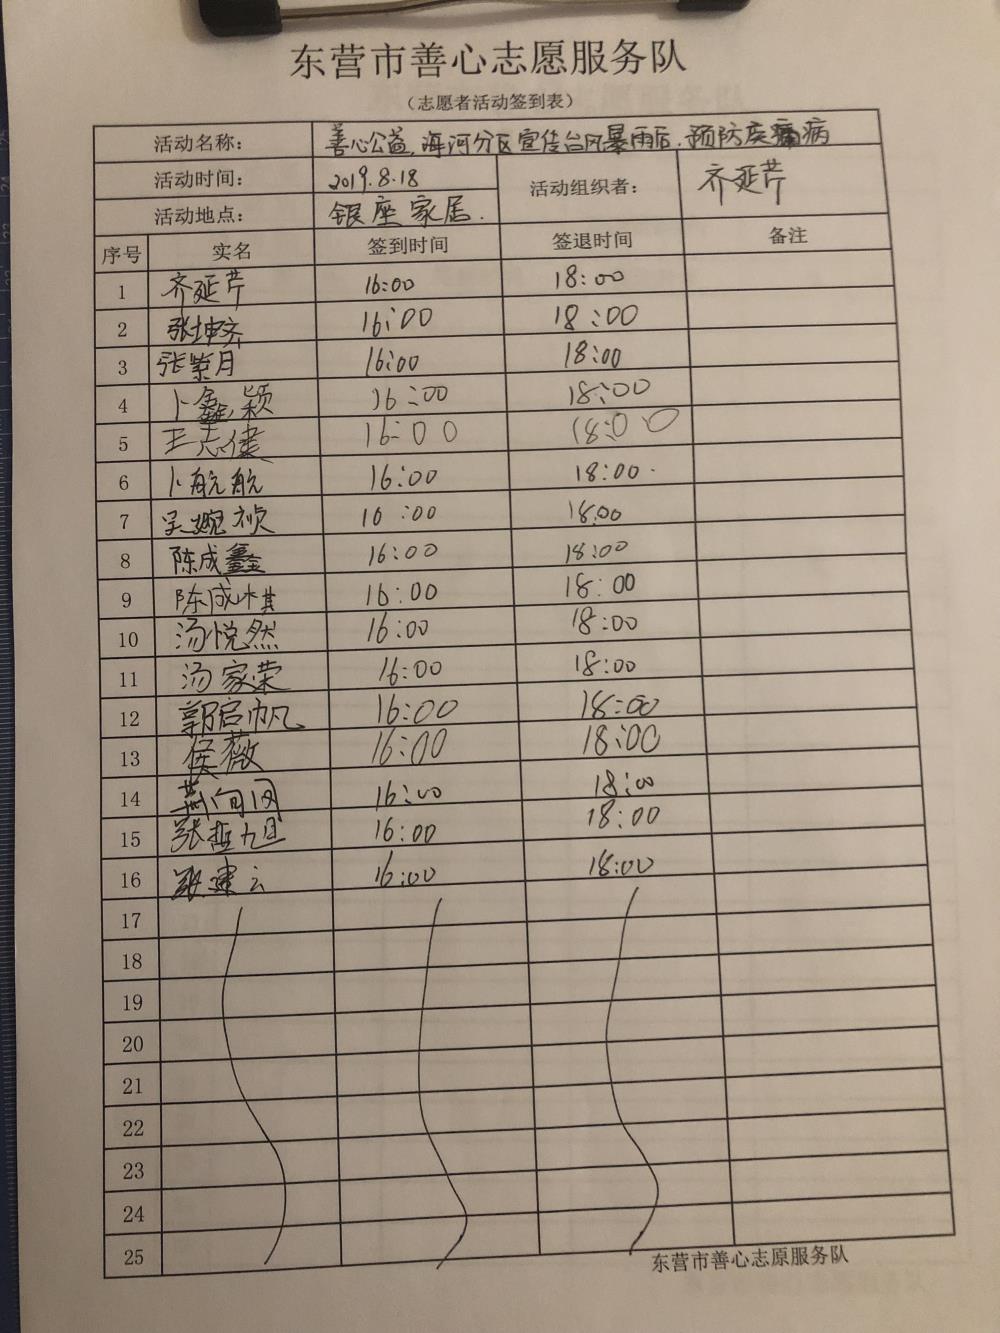 东营市善心志愿服务队
（志愿者活动签到表）
活动名称： 善心公益，海河分区宣传台风暴雨后，预防疾病
活动时间： 2019.8.18 活动组织者： 齐延芹
活动地点： 银座家居.
序号 实名 签到时间 签退时间 备注
1 齐延芹 16:00 18:00
2 张坤齐 16:00 18:00
3 张紫月 16:00 18:00
4 卜鑫颖 16:00 18:00
5 王志健 16:00 18:00
6 卜航航 16:00 18:00
7 吴婉祯 16:00 18:00
8 陈成鑫 16:00 18:00
9 陈成淇 16:00 18:00
10 汤悦然 16:00 18:00
11 汤家荣 16:00 18:00
12 郭启帆 16:00 18:00
13 侯薇 16:00 18:00
14 16:00 18:00
15 张 16:00 18:00
16 建云 16:00 18:00
17
18
19
20
21
22
23
24
25
东营市善心志原服务队